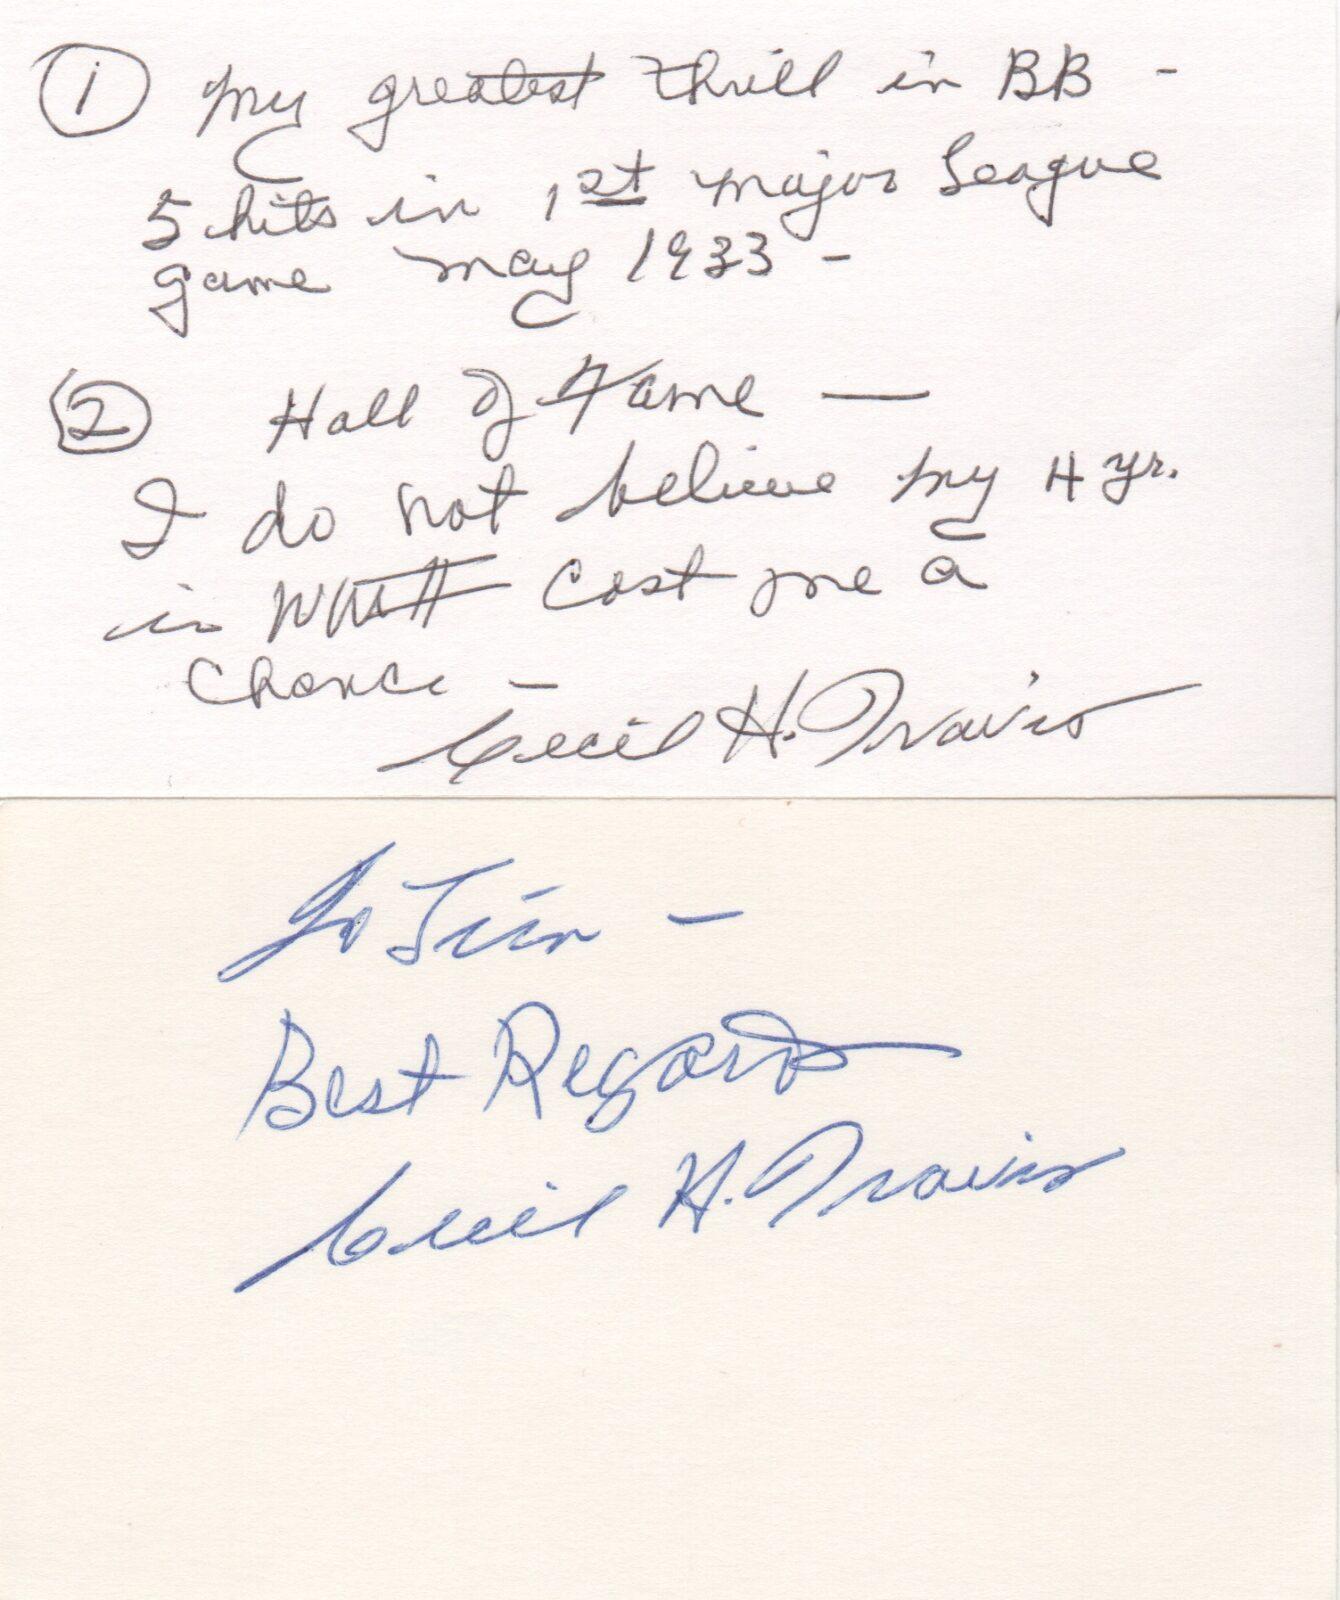 ① My greatest thrill in BB -
5 hits in 1st major League
game may 1933 -
② Hall of Fame —
I do not believe my 4 yr.
in WWII cost me a
chance -
Cecil H. Travis
To Jim -
Best Regards
Cecil H. Travis